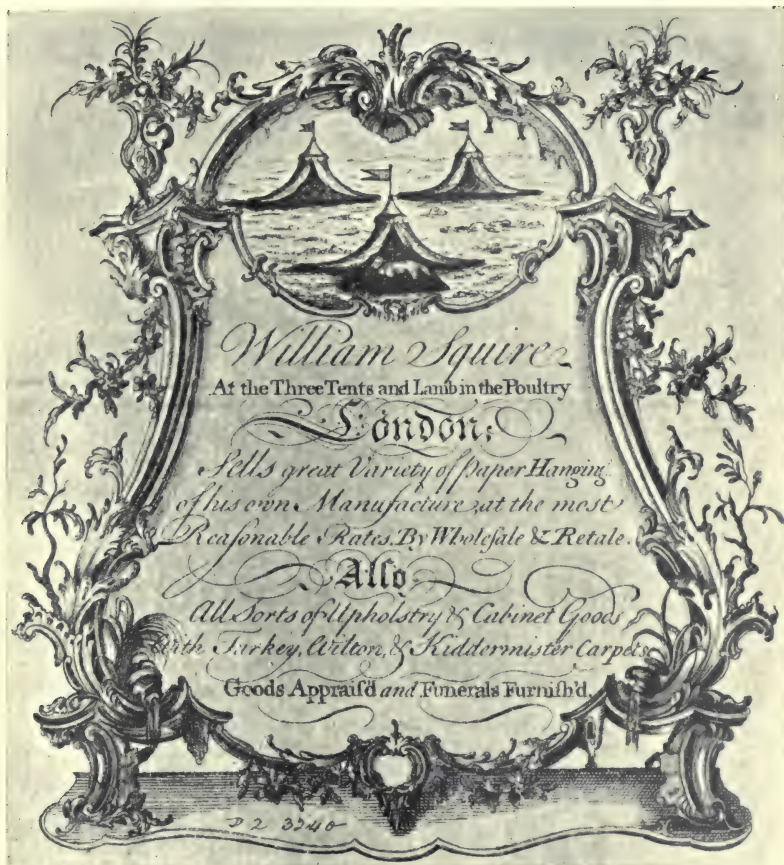 William Squire
At the Three Tents and Lamb in the Poultry
London;
Sells great Variety of Paper Hanging
of his own Manufacture, at the most
Reaſonable Rates, By Wholeſale & Retale.
Alſo
All Sorts of Upholstry & Cabinet Goods
with Turkey, Wilton, & Kiddermister Carpets
Goods Appraiſ'd and Funerals Furniſh'd.
D 2 3240